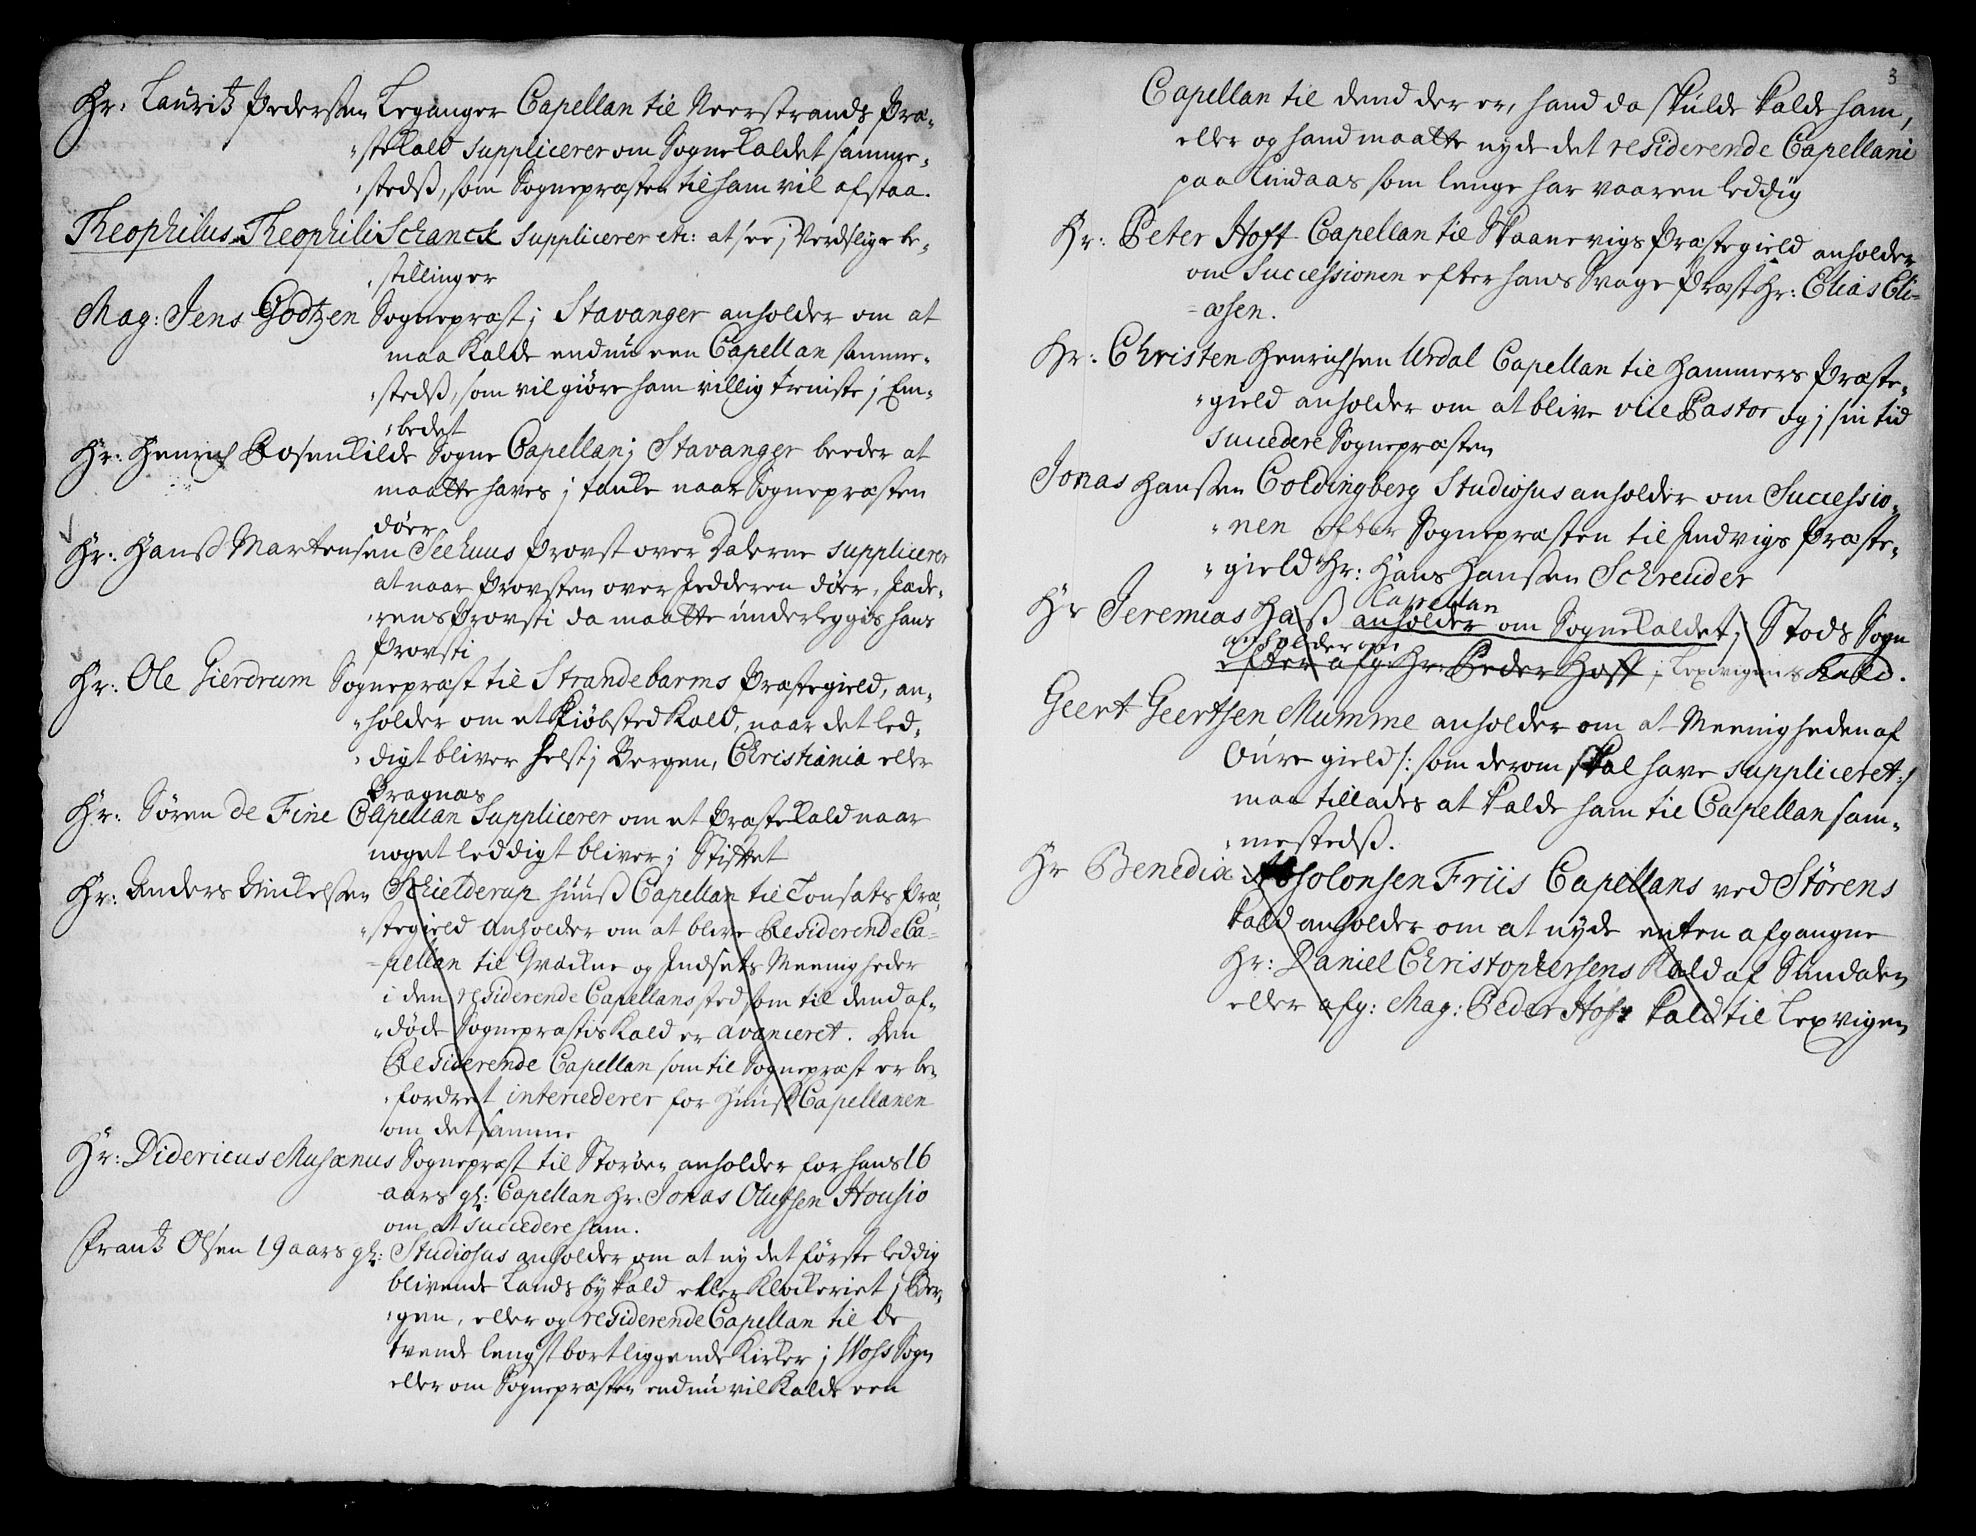 Hr: Lauritz Pedersen Leganger Capellan til Neerstrands Præ-
stekald supplicerer om Sognekaldet samme-
stedß, som Sognepræsten til ham vil afstaa.
Theophilus Theophili Schanck supplicerer etc: at see j Verdslige be-
stillinger
Mag: Jens Godtzen Sognepræst j Stavanger anholder om at
maa kalde endnu een Capellan samme-
stedß, som vil giøre ham villig tieniste j Em-
bedet
Hr: Henrich Rosenkilde Sogne Capellan j Stavanger beeder at
maatte haves j tanke naar Sognepræsten
døer
Hr: Hanß Martensen Seehuus Provst over Dalerne supplicerer
at naar Provsten over Jedderen døer, Jæde-
rens Provsti da maatte underleggis hans
Provsti
Hr: Ole Gierdrum Sognepræst til Strandebarms Præstegield, an-
holder om et Kiøbsted Kald, naar det led-
digt bliver helst j Bergen, Christiania eller
Bragnæs
Hr: Søren de Fine Capellan Supplicerer om et Præstekald naar
noget leddigt bliver j Stiftet
Hr: Anders Mickelsen Schielderup huuß Capellan til Tonsæts Præ-
stegield anholder om at blive Residerende Ca-
pellan til Qvickne og Indsets Meenigheder
i den residerende Capellans sted som til dend af-
døde Sognepræstis Kald er avanceret. Den
Residerende Capellan som til Sognepræst er be-
fordret intercederer for Huuß Capellanen
om det samme
Hr: Didericus Musæus Sognepræst til Storøen anholder for hans 16
aars gl: Capellan Hr. Jonas Olufsen Housio
om at succedere ham.
Frantz Olsen 19 aars gl: Studiosus anholder om at ny det første leddig
blivende Lands by kald eller Klockeriet j Ber-
gen, eller og residerende Capellan til de
tvende lengst bortliggende Kirker j Woss Sogn
eller om Sognepræsten endnu vil kalde een
3
Capellan til dend der er, hand da skulde kalde ham,
eller og hand maatte nyde det residerende Capellanie
paa Lindaas som lenge har vaaren leddig
Hr: Peter Hoff Capellan til Skaanevigs Præstegield anholder
om Successionen efter hans Svage Præst Hr: Elias Eli-
æsen.
Hr: Christen Henrichsen Urdal Capellan til Hammers Præste-
gield anholder om at blive vice Pastor og j sin tid
succedere Sognepræsten
Jonas Hansen Coldingberg Studiosus anholder om Successio-
nen efter Sognepræsten til Indvigs Præste-
gield Hr: Hans Hansen Schreuder
Capellan
Hr Jeremias Haß anholder om Sognekaldet j Stods Sogn
anholder om
efter afg: Hr: Peder Hoff j Lexvigens Kald.
Geert Geertsen Mumme anholder om at Meenigheden af
Oure gield /: som derom skal have suppliceret :/
maa tillades at kalde ham til Capellan sam-
mestedß.
Hr Benedix Absolonsen Friis Capellans ved Størens
kald anholder om at nyde enten afgangne
Hr: Daniel Christophersens Kald af Sundalen
eller afg: Mag: Peder Hofs kald til Lexvigen